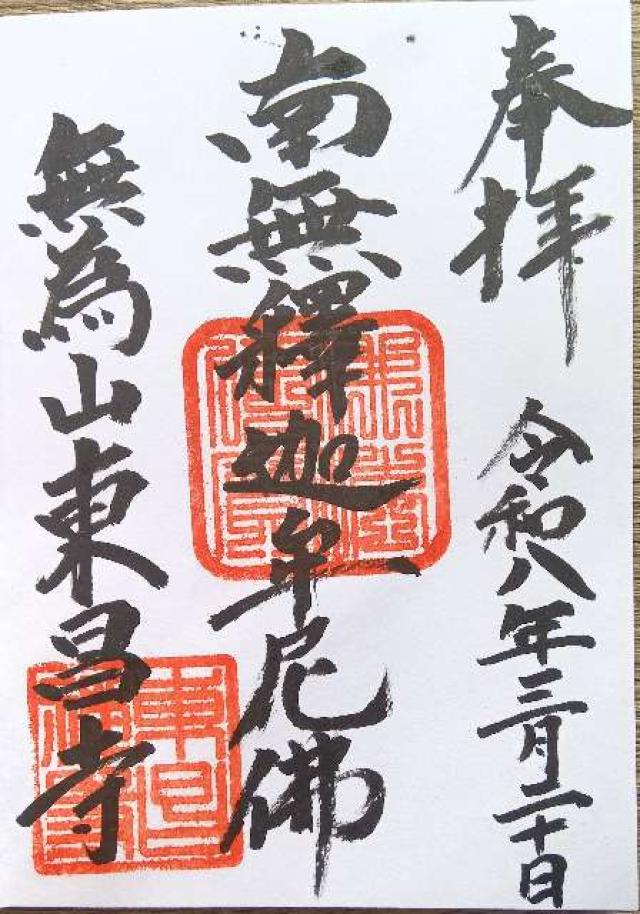 奉拝
令和八年三月二十日
南無釋迦牟尼佛
無為山東昌寺